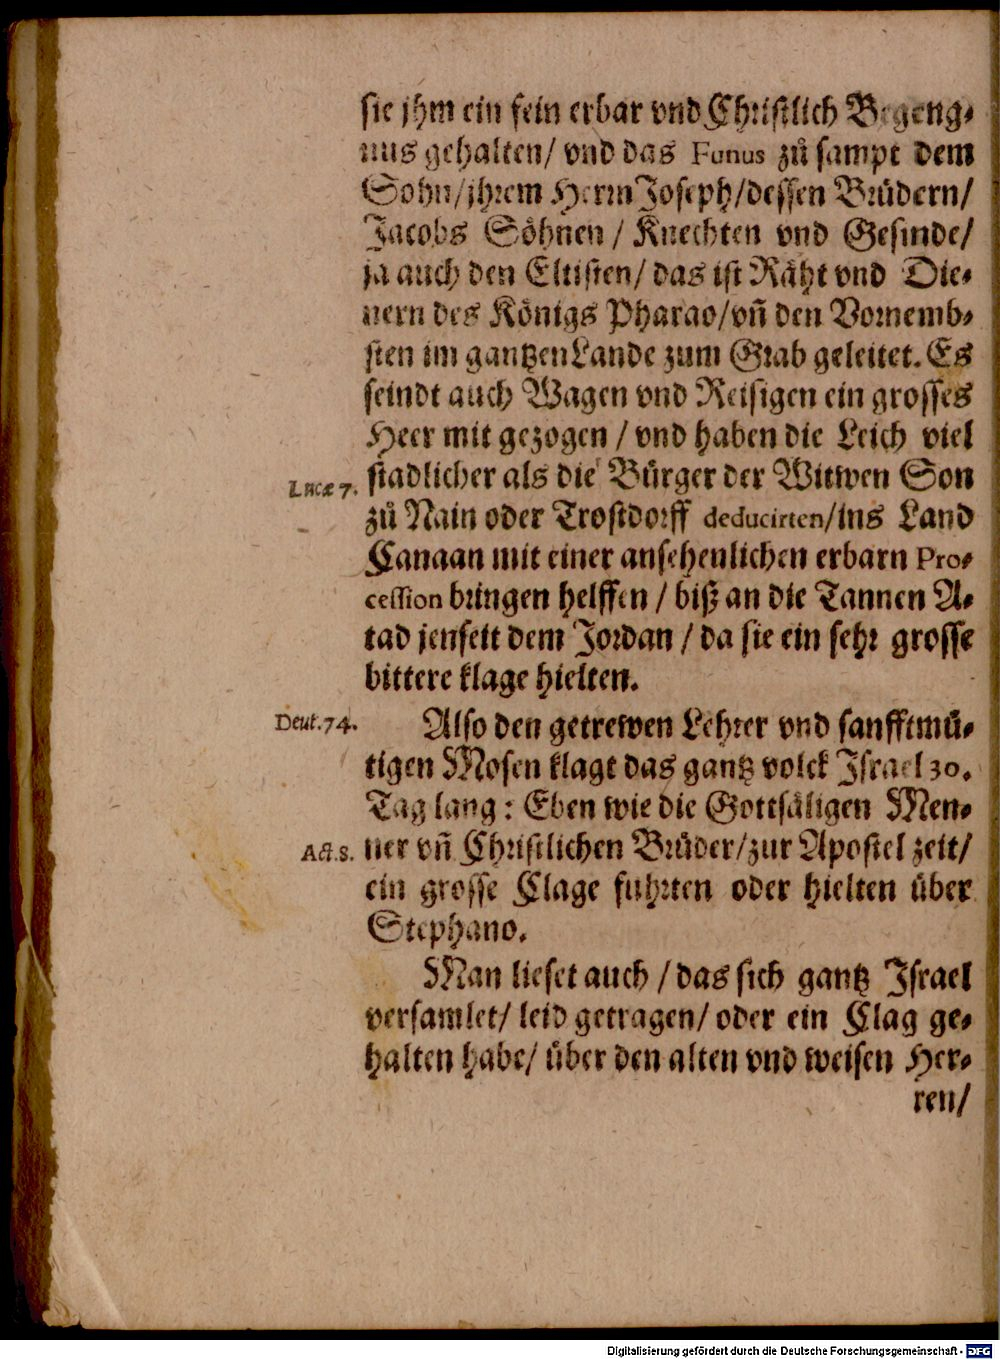 sie jhm ein fein erbar vnd Christlich Begeng-
nus gehalten/ vnd das Funus zů sampt dem
Sohn/jhrem Herrn Joseph/dessen Brüdern/
Jacobs Söhnen / Knechten vnd Gesinde/
ja auch den Eltisten/ das ist Räht vnd Die-
nern des Königs Pharao/vñ den Vornemb-
sten im gantzen Lande zum Grab geleitet. Es
seindt auch Wagen vnd Reisigen ein grosses
Heer mit gezogen / vnd haben die Leich viel
Lucæ 7. stadlicher als die Bürger der Witwen Son
zů Nain oder Trostdorff deducirten/ins Land
Canaan mit einer ansehenlichen erbarn Pro-
cession bringen helffen / biß an die Tannen A-
tad jenseit dem Jordan / da sie ein sehr grosse
bittere klage hielten.
Deut.74. Also den getrewen Lehrer vnd sanfftmü-
tigen Mosen klagt das gantz volck Israel 30.
Tag lang : Eben wie die Gottsäligen Men-
Act.8. ner vñ Christlichen Brüder/zur Apostel zeit/
ein grosse Clage fuhrten oder hielten über
Stephano.
Man lieset auch / das sich gantz Israel
versamlet/ leid getragen/ oder ein Clag ge-
halten habe/ über den alten vnd weisen Her-
ren/
Digitalisierung gefördert durch die Deutsche Forschungsgemeinschaft - DFG